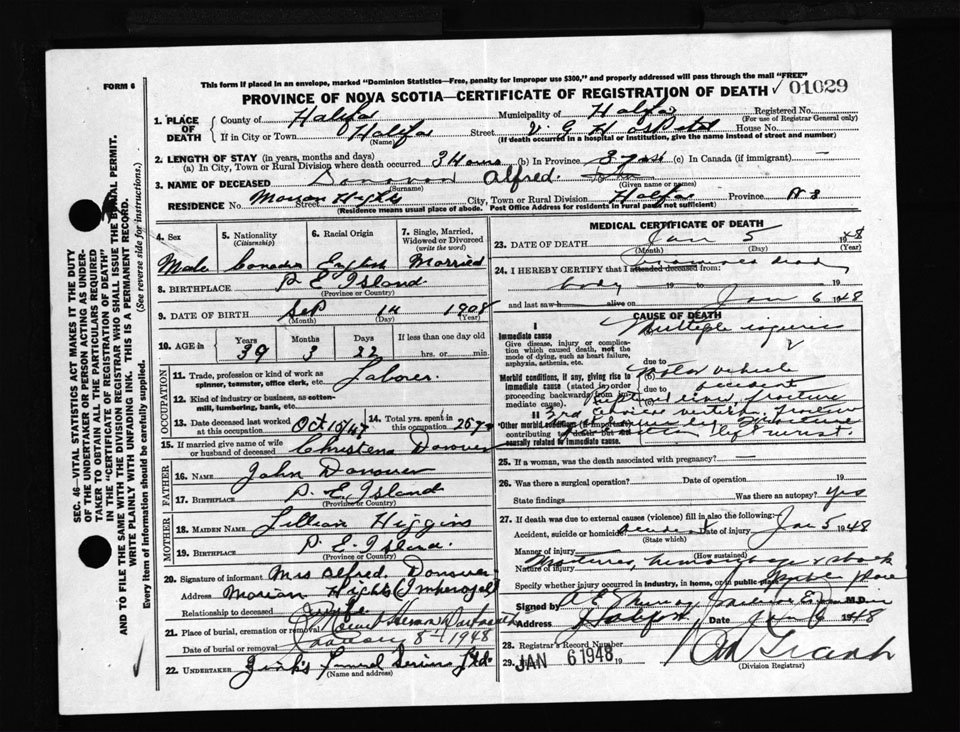 FORM 6
This form if placed in an envelope, marked "Dominion Statistics—Free, penalty for improper use $300," and properly addressed will pass through the mail "FREE"
PROVINCE OF NOVA SCOTIA—CERTIFICATE OF REGISTRATION OF DEATH 01029
1. PLACE OF DEATH County of Halifax Municipality of Halifax Registered No. (For use of Registrar General only)
If in City or Town Halifax (Name) Street V. G. Hospital House No.
(If death occurred in a hospital or institution, give the name instead of street and number)
2. LENGTH OF STAY (in years, months and days)
(a) In City, Town or Rural Division where death occurred 3 Hours (b) In Province (c) In Canada (if immigrant) —
3. NAME OF DECEASED Donovan Alfred
(Surname) (Given name or names)
RESIDENCE No. Street City, Town or Rural Division Halifax Province N S
(Residence means usual place of abode. Post Office Address for residents in rural parts not sufficient)
4. Sex Male
5. Nationality (Citizenship) Canadian
6. Racial Origin English
7. Single, Married, Widowed or Divorced (write the word) Married
8. BIRTHPLACE P. E Island
(Province or Country)
9. DATE OF BIRTH Sep (Month) (Day) 1908 (Year)
10. AGE in Years 39 Months 3 Days 22 If less than one day old hrs. or min.
OCCUPATION
11. Trade, profession or kind of work as spinner, teamster, office clerk, etc. Laborer.
12. Kind of industry or business, as cotton-mill, lumbering, bank, etc.
13. Date deceased last worked at this occupation Oct 10/47
14. Total yrs. spent in this occupation 25 yrs
15. If married give name of wife or husband of deceased Christena Donovan
FATHER
16. Name John Donovan
17. BIRTHPLACE P. E. Island
MOTHER
18. MAIDEN NAME Lillian Higgins
19. BIRTHPLACE P. E. Island.
20. Signature of informant Mrs Alfred. Donovan
Address
Relationship to deceased wife
21. Place of burial, cremation or removal
Date of burial or removal January 8th 1948
22. UNDERTAKER Zink's Funeral Service Ltd.
(Name and address)
MEDICAL CERTIFICATE OF DEATH
23. DATE OF DEATH Jan (Month) 5 (Day) 1948 (Year)
24. I HEREBY CERTIFY that I attended deceased from:
body 19 to 19
and last saw h alive on Jan 6 1948
CAUSE OF DEATH
I
Immediate cause
Give disease, injury or complication which caused death, not the mode of dying, such as heart failure, asphyxia, asthenia, etc.
Multiple injuries
Morbid conditions, if any, giving rise to immediate cause (stated in order proceeding backwards from immediate cause).
due to
(b) Motor vehicle
due to accident
II
Other morbid conditions (if important) contributing to death but not causally related to immediate cause.
25. If a woman, was the death associated with pregnancy? —
26. Was there a surgical operation? Date of operation 19
State findings Was there an autopsy? Yes
27. If death was due to external causes (violence) fill in also the following:
Accident, suicide or homicide accident Date of injury Jan 5 1948
(State which)
Manner of injury
(How sustained)
Nature of injury
Specify whether injury occurred in industry, in home, or in public place Public place
Signed by M.D.
Address Halifax Date Jan 6 1948
28. Registrar's Record Number
29. JAN 6 1948 19
(Division Registrar)
SEC. 46—VITAL STATISTICS ACT MAKES IT THE DUTY OF THE UNDERTAKER OR PERSON ACTING AS UNDERTAKER TO OBTAIN ALL THE PARTICULARS REQUIRED IN THE "CERTIFICATE OF REGISTRATION OF DEATH" AND TO FILE THE SAME WITH THE DIVISION REGISTRAR WHO SHALL ISSUE THE BURIAL PERMIT.
WRITE PLAINLY WITH UNFADING INK. THIS IS A PERMANENT RECORD.
Every item of information should be carefully supplied. (See reverse side for instructions.)